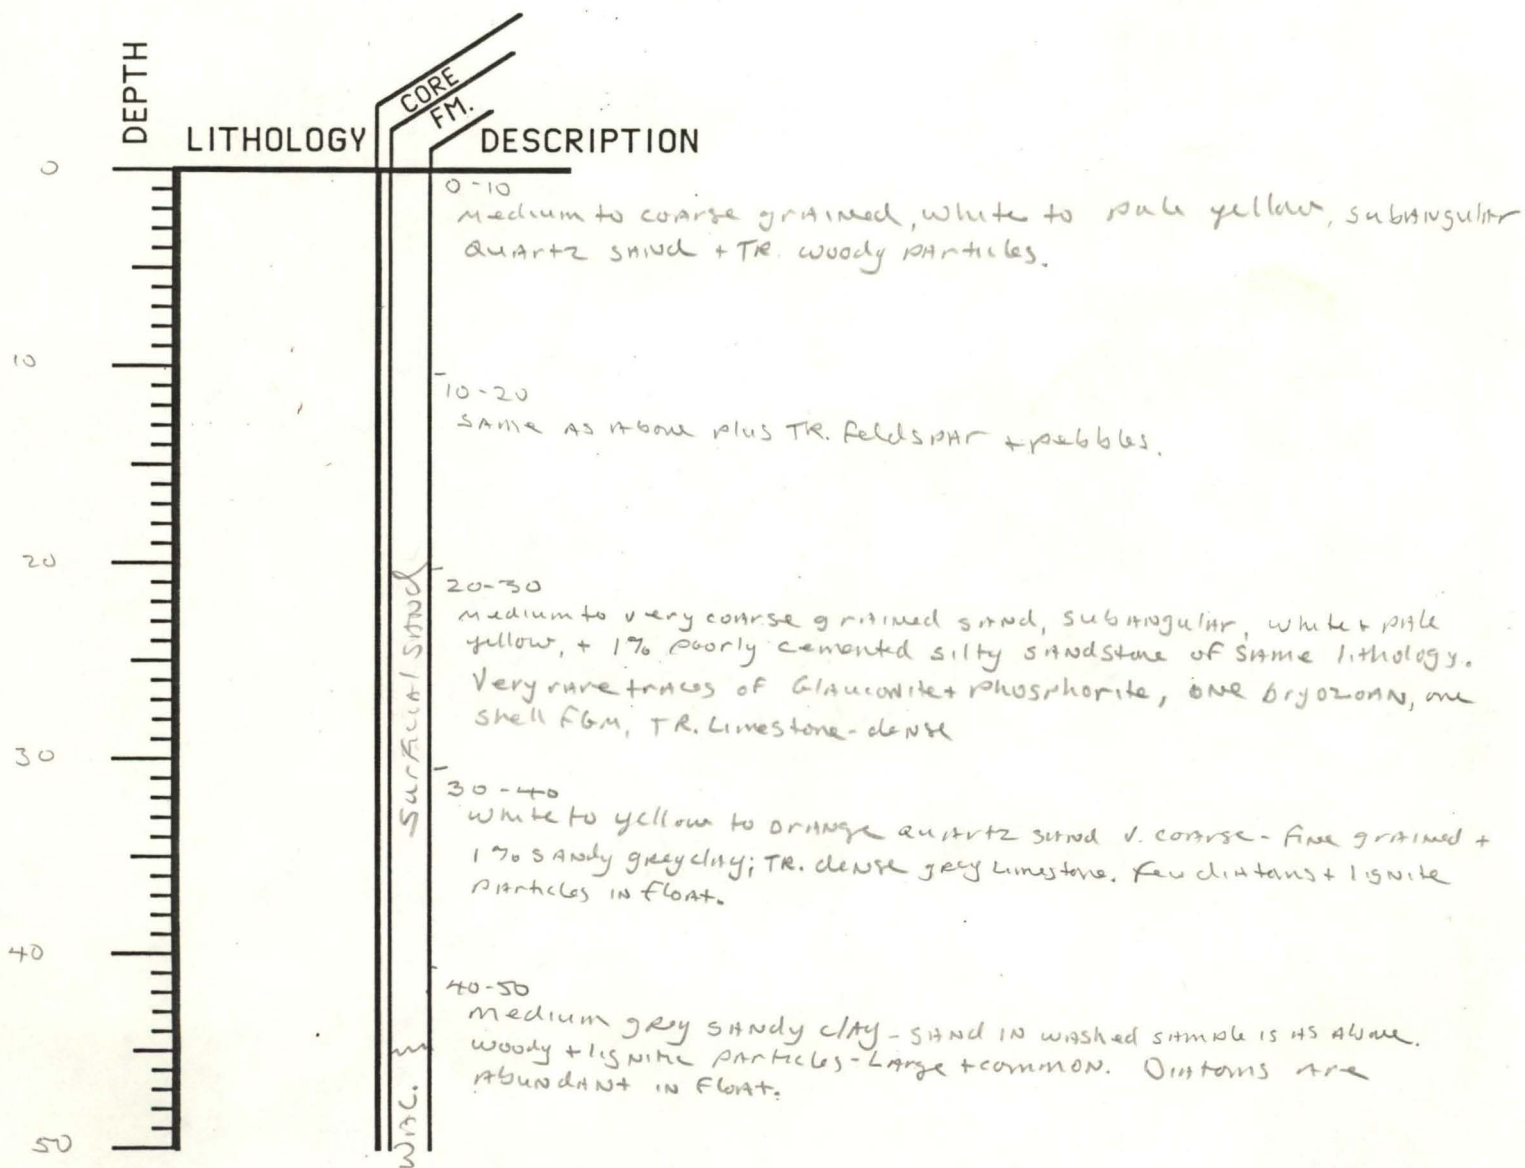 DEPTH
LITHOLOGY
CORE
FM.
DESCRIPTION
0
0-10
Medium to coarse grained, white to pale yellow, subangular
Quartz sand + TR. woody particles.
10
10-20
Same as above plus TR. feldspar + pebbles.
20
20-30
Medium to very coarse grained sand, subangular, white + pale
yellow, + 1% poorly cemented silty sandstone of same lithology.
Very rare traces of Glauconite + Phosphorite, one bryozoan, one
shell FGM, TR. Limestone - dense
Surficial sand
30
30-40
White to yellow to orange quartz sand v. coarse - fine grained +
1% sandy grey clay; TR. dense grey Limestone. Few diatoms + lignite
particles in float.
40
40-50
Medium grey sandy clay - sand in washed sample is as above.
Woody + lignitic particles - Large + common. Diatoms are
abundant in float.
50